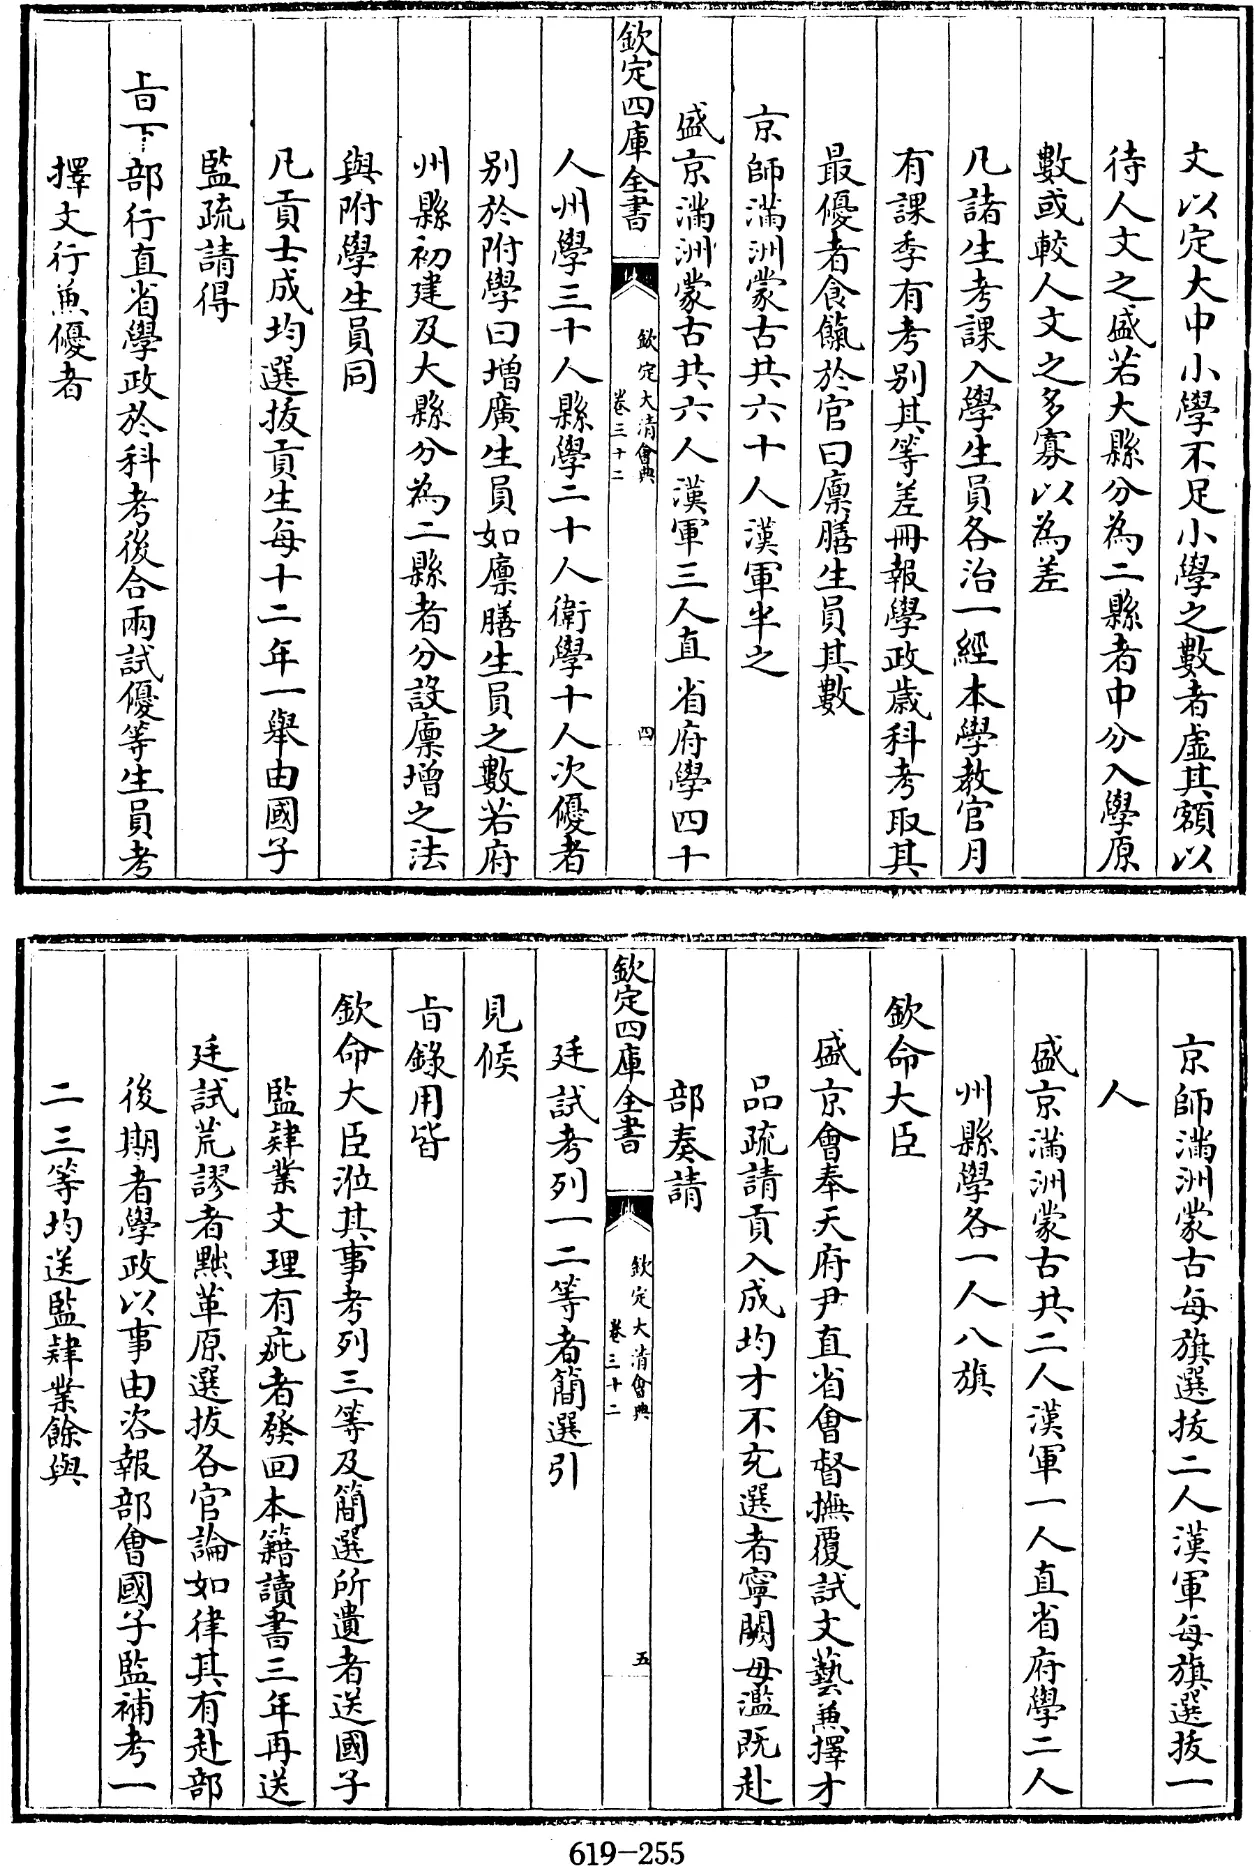 文以定大中小學不足小學之數者虛其額以
待人文之盛若大縣分為二縣者中分入學原
數或較人文之多寡以為差
凡諸生考課入學生員各治一經本學教官月
有課季有考別其等差冊報學政歲科考取其
最優者食餼於官曰廩膳生員其數
京師滿洲蒙古共六十人漢軍半之
盛京滿洲蒙古共六人漢軍三人直省府學四十
欽定四庫全書
欽定大清會典
卷三十二
四
人州學三十人縣學二十人衛學十人次優者
別於附學曰增廣生員如廩膳生員之數若府
州縣初建及大縣分為二縣者分設廩增之法
與附學生員同
凡貢士成均選拔貢生每十二年一舉由國子
監疏請得
旨下部行直省學政於科考後合兩試優等生員考
擇文行兼優者
京師滿洲蒙古每旗選拔二人漢軍每旗選拔一
人
盛京滿洲蒙古共二人漢軍一人直省府學二人
州縣學各一人八旗
欽命大臣
盛京會奉天府尹直省會督撫覆試文藝兼擇才
品疏請貢入成均才不充選者寧闕毋濫既赴
部奏請
欽定四庫全書
欽定大清會典
卷三十二
五
廷試考列一二等者簡選引
見候
旨錄用皆
欽命大臣涖其事考列三等及簡選所遺者送國子
監肄業文理有疵者發回本籍讀書三年再送
廷試荒謬者黜革原選拔各官論如律其有赴部
後期者學政以事由咨報部會國子監補考一
二三等均送監肄業餘與
619-255